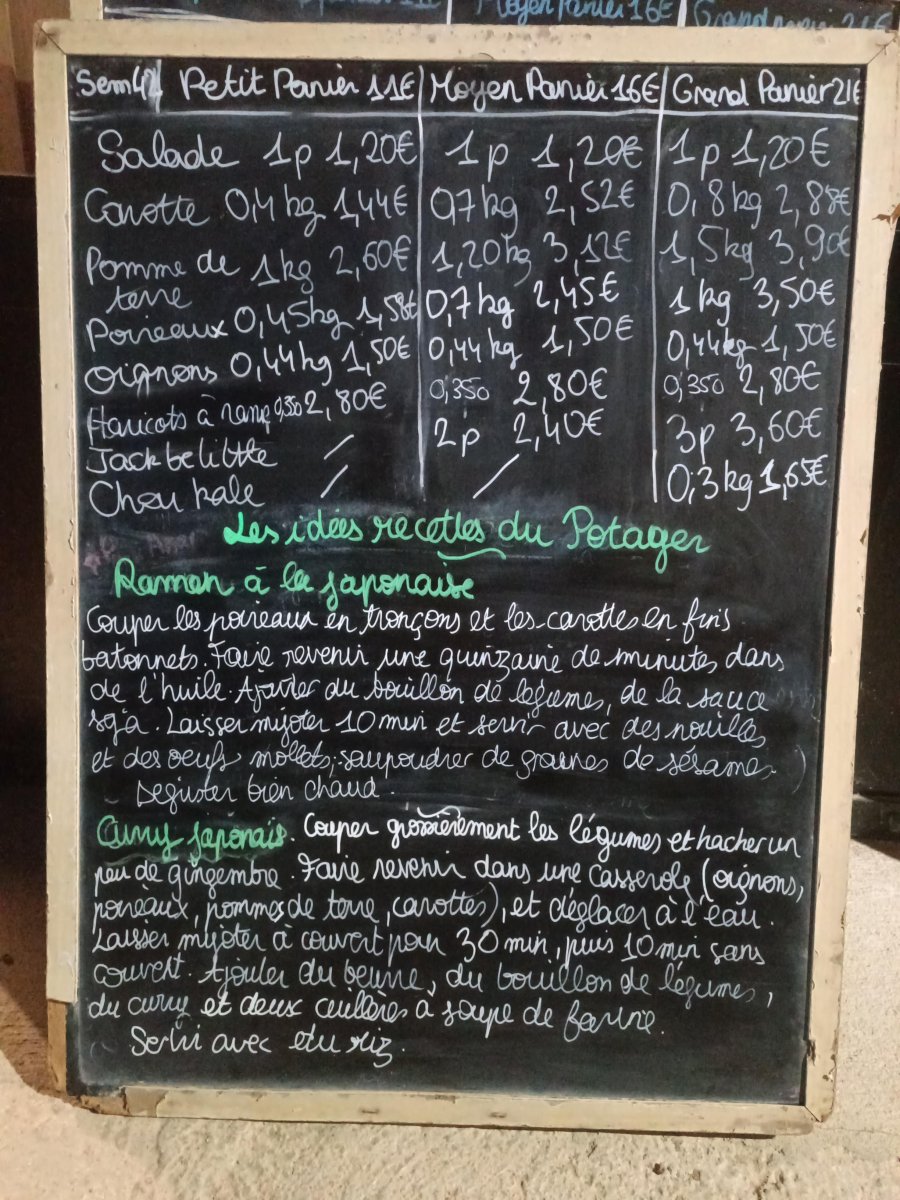 Moyen Panier 16€ Grand Panier 21€
Sem42 Petit Panier 11€ Moyen Panier 16€ Grand Panier 21€
Salade 1p 1,20€ 1p 1,20€ 1p 1,20€
Carotte 0,4kg 1,44€ 0,7kg 2,52€ 0,8kg 2,88€
Pomme de terre 1kg 2,60€ 1,20kg 3,12€ 1,5kg 3,90€
Poireaux 0,45kg 1,58€ 0,7kg 2,45€ 1kg 3,50€
Oignons 0,44kg 1,50€ 0,44kg 1,50€ 0,44kg 1,50€
Haricots à rame 0,350 2,80€ 0,350 2,80€ 0,350 2,80€
Jack be little / 2p 2,40€ 3p 3,60€
Chou kale / / 0,3kg 1,65€
Les idées recettes du Potager
Ramen à la japonaise
Couper les poireaux en tronçons et les carottes en fins
batonnets. Faire revenir une quinzaine de minutes dans
de l'huile. Ajouter du bouillon de légumes, de la sauce
soja. Laisser mijoter 10min et servir avec des nouilles
et des oeufs mollets, saupoudrer de graines de sésames.
Déguster bien chaud.
Curry japonais. Couper grossièrement les légumes et hacher un
peu de gingembre. Faire revenir dans une casserole (oignons,
poireaux, pommes de terre, carottes), et déglacer à l'eau.
Laisser mijoter à couvert pour 30 min, puis 10 min sans
couvert. Ajouter du beurre, du bouillon de légumes,
du curry et deux cuillères à soupe de farine.
Servir avec du riz.